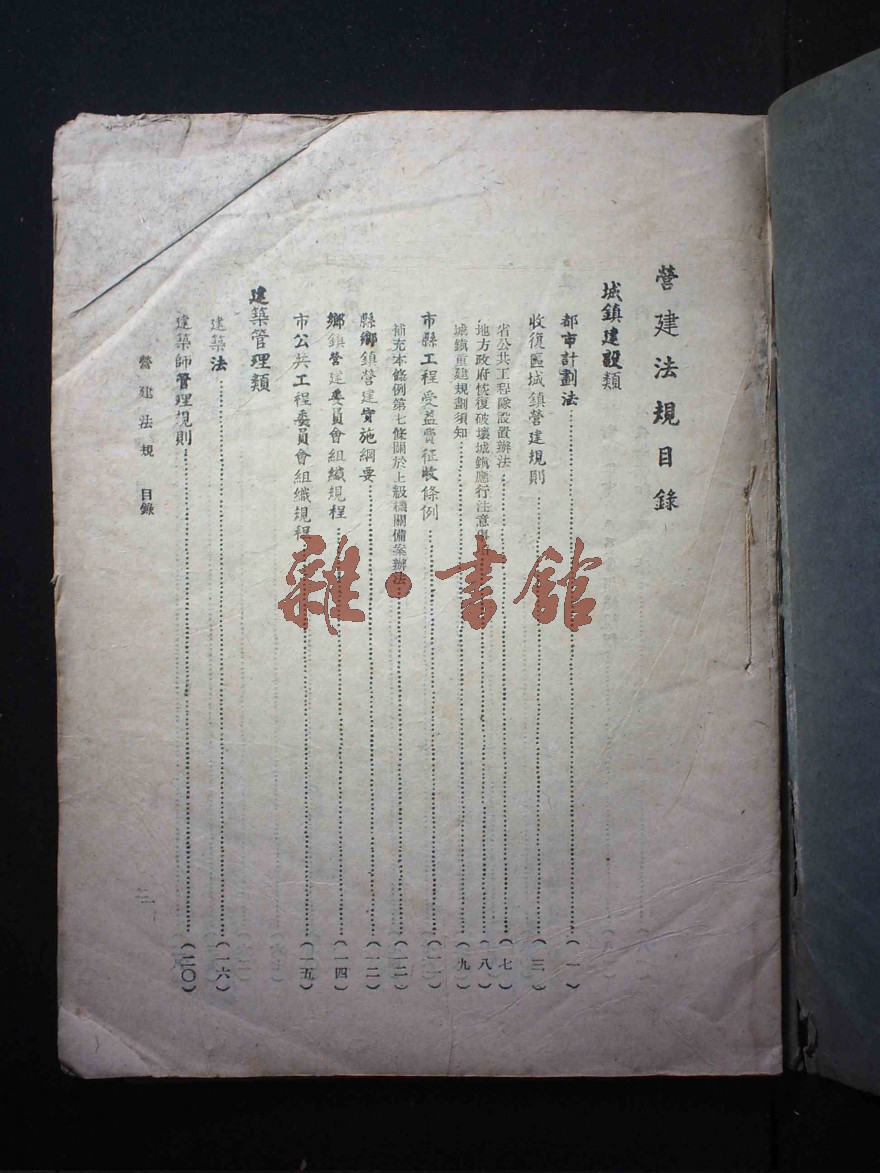 營建法規目錄
城鎮建設類
都市計劃法(一)
收復區城鎮營建規則(三)
省公共工程隊設置辦法(七)
地方政府恢復破壞城鎮應行注意事項(八)
城鎮重建規劃須知(九)
市縣工程受益費征收條例(一一)
補充本條例第七條關於上級機關備案辦法(一二)
縣鄉鎮營建實施綱要(一二)
鄉鎮營建委員會組織規程(一四)
市公共工程委員會組織規程(一五)
建築管理類
建築法(一六)
建築師管理規則(二〇)
營建法規 目錄
雜·書館